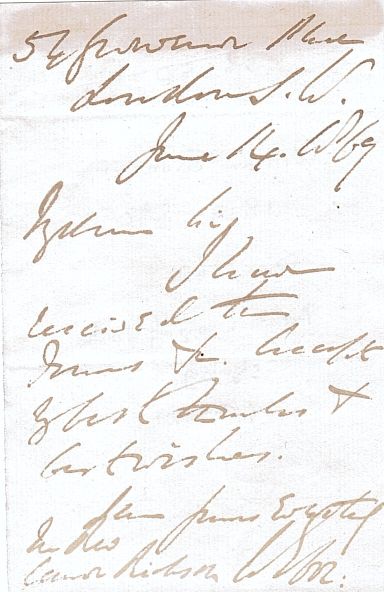 54 Grosvenor Place
London S.W.
June 14. 1869
My dear Sir,
I have
received the
& accept
my best thanks &
best wishes.
I am yours
The Rev
Canon